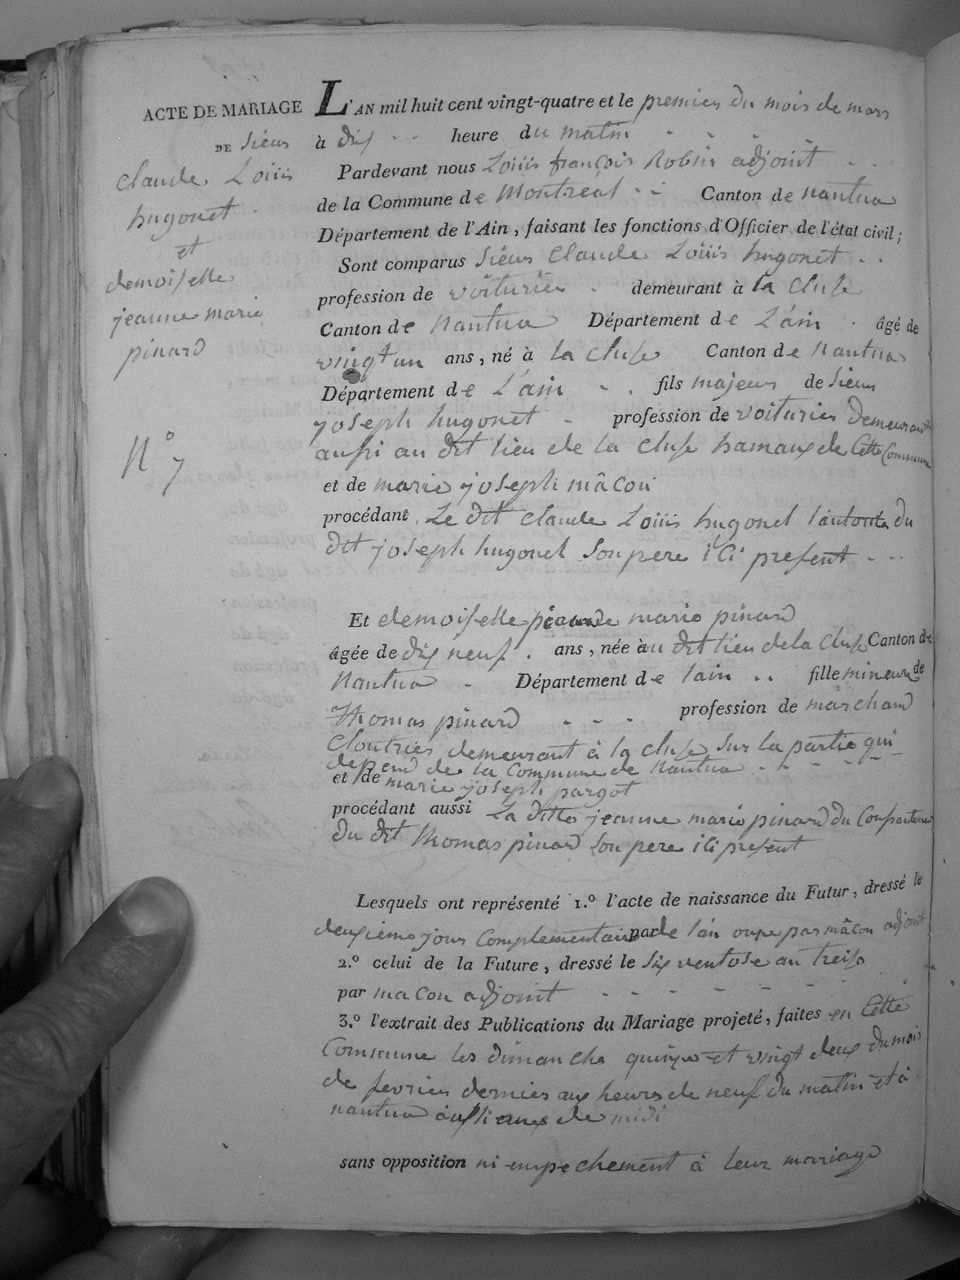 ACTE DE MARIAGE
DE Sieur
Claude Louis
hugonet
et
demoiselle
jeanne marie
pinard
N° 7
L'AN mil huit cent vingt-quatre et le premier du mois de mars
à dix heure du matin
Pardevant nous Louis françois Robin adjoint
de la Commune de Montreal Canton de nantua
Département de l'Ain, faisant les fonctions d'Officier de l'état civil;
Sont comparus Sieur Claude Louis hugonet
profession de voiturier demeurant à la Cluse
Canton de Nantua Département de L'ain âgé de
vingt un ans, né à la Cluse Canton de Nantua
Département de L'ain fils majeur de Sieur
joseph hugonet profession de voiturier demeurant
aussi au dit lieu de la Cluse hamaux de Cette Commune
et de marie joseph mâcon
procédant Le dit Claude Louis hugonet l'autorité du
dit joseph hugonet Son pere ici present
Et demoiselle jeanne marie pinard
âgée de dix neuf ans, née au dit lieu de la Cluse Canton de
Nantua Département de lain fille mineure de
Thomas pinard profession de marchand
Cloutrier demeurant à la Cluse Sur la partie qui
depend de la Commune de Nantua
et de marie joseph pargot
procédant aussi La ditte jeanne marie pinard du Consentement
du dit Thomas pinard Son pere ici present
Lesquels ont représenté 1.° l'acte de naissance du Futur, dressé le
deuxieme jour Complementaire de l'an onze par mâcon adjoint
2.° celui de la Future, dressé le Six ventose an treise
par macon adjoint
3.° l'extrait des Publications du Mariage projeté, faites en Cette
Commune les dimanche quinze et vingt deux du mois
de fevrier dernier aux heures de neuf du matin et à
nantua de midi
sans opposition ni empechement à leur mariage